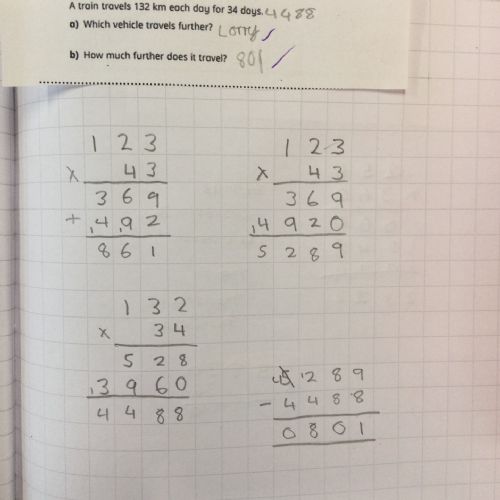 A train travels 132 km each day for 34 days. 4488
a) Which vehicle travels further? Lorry
b) How much further does it travel? 801
1 2 3
x 4 3
3 6 9
+ 4 9 2
8 6 1
1 2 3
x 4 3
3 6 9
4 9 2 0
5 2 8 9
1 3 2
x 3 4
5 2 8
3 9 6 0
4 4 8 8
5 2 8 9
- 4 4 8 8
0 8 0 1